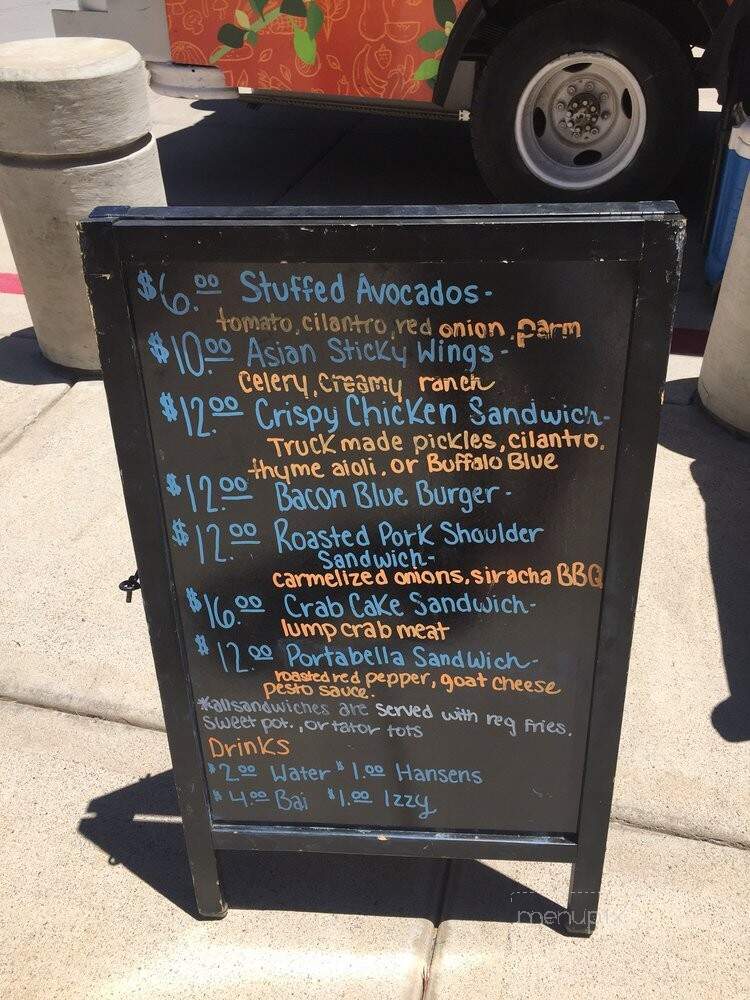 $6.00 Stuffed Avocados-
tomato, cilantro, red onion, parm
$10.00 Asian Sticky Wings-
Celery, Creamy ranch
$12.00 Crispy Chicken Sandwich-
Truck made pickles, cilantro.
thyme aioli, or Buffalo Blue
$12.00 Bacon Blue Burger-
$12.00 Roasted Pork Shoulder
Sandwich-
carmelized onions, siracha BBQ
$16.00 Crab Cake Sandwich-
lump crab meat
$12.00 Portabella Sandwich-
roasted red pepper, goat cheese
pesto sauce.
*all sandwiches are served with reg fries,
sweet pot., or tator tots
Drinks
$2.00 Water $1.00 Hansens
$4.00 Bai $1.00 Izzy
menupix